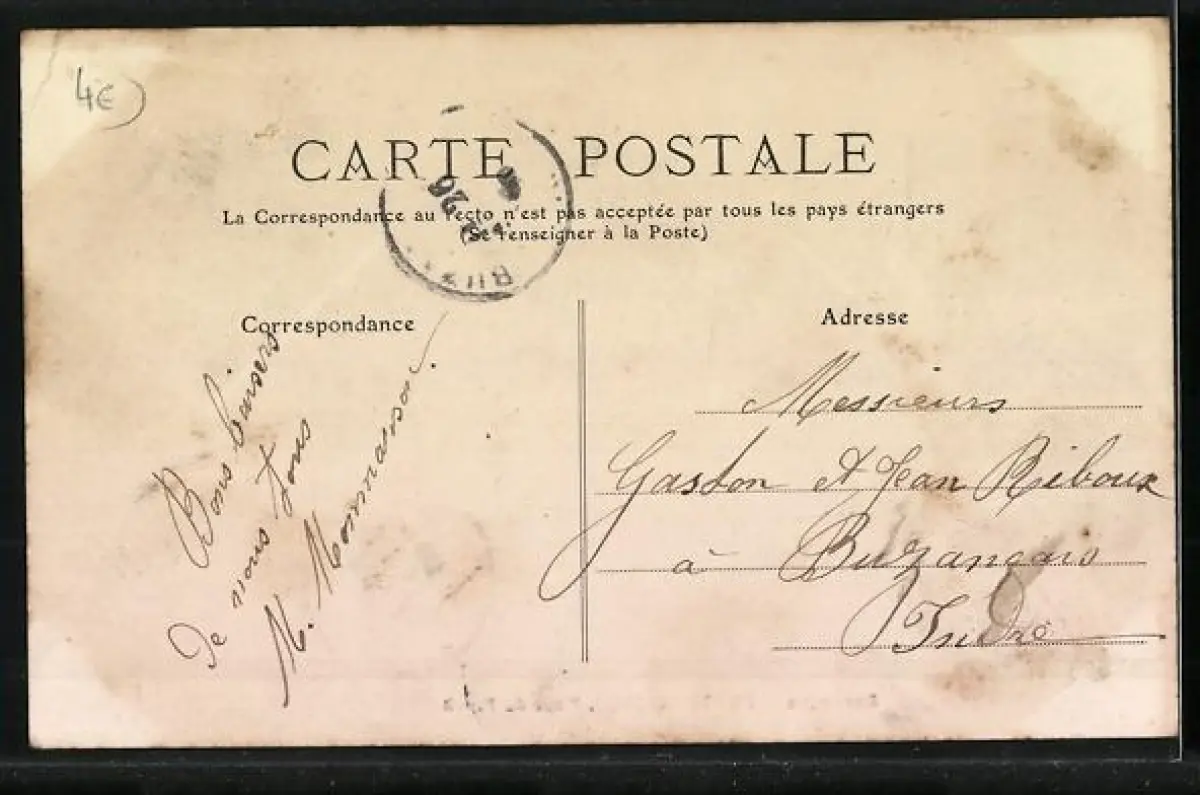 4€
CARTE POSTALE
La Correspondance au recto n'est pas acceptée par tous les pays étrangers
(Se renseigner à la Poste)
26
BUZ
Correspondance
Bons baisers
De nous tous
M.
Adresse
Messieurs
Gaston et Jean Riboux
à Buzançais
Indre